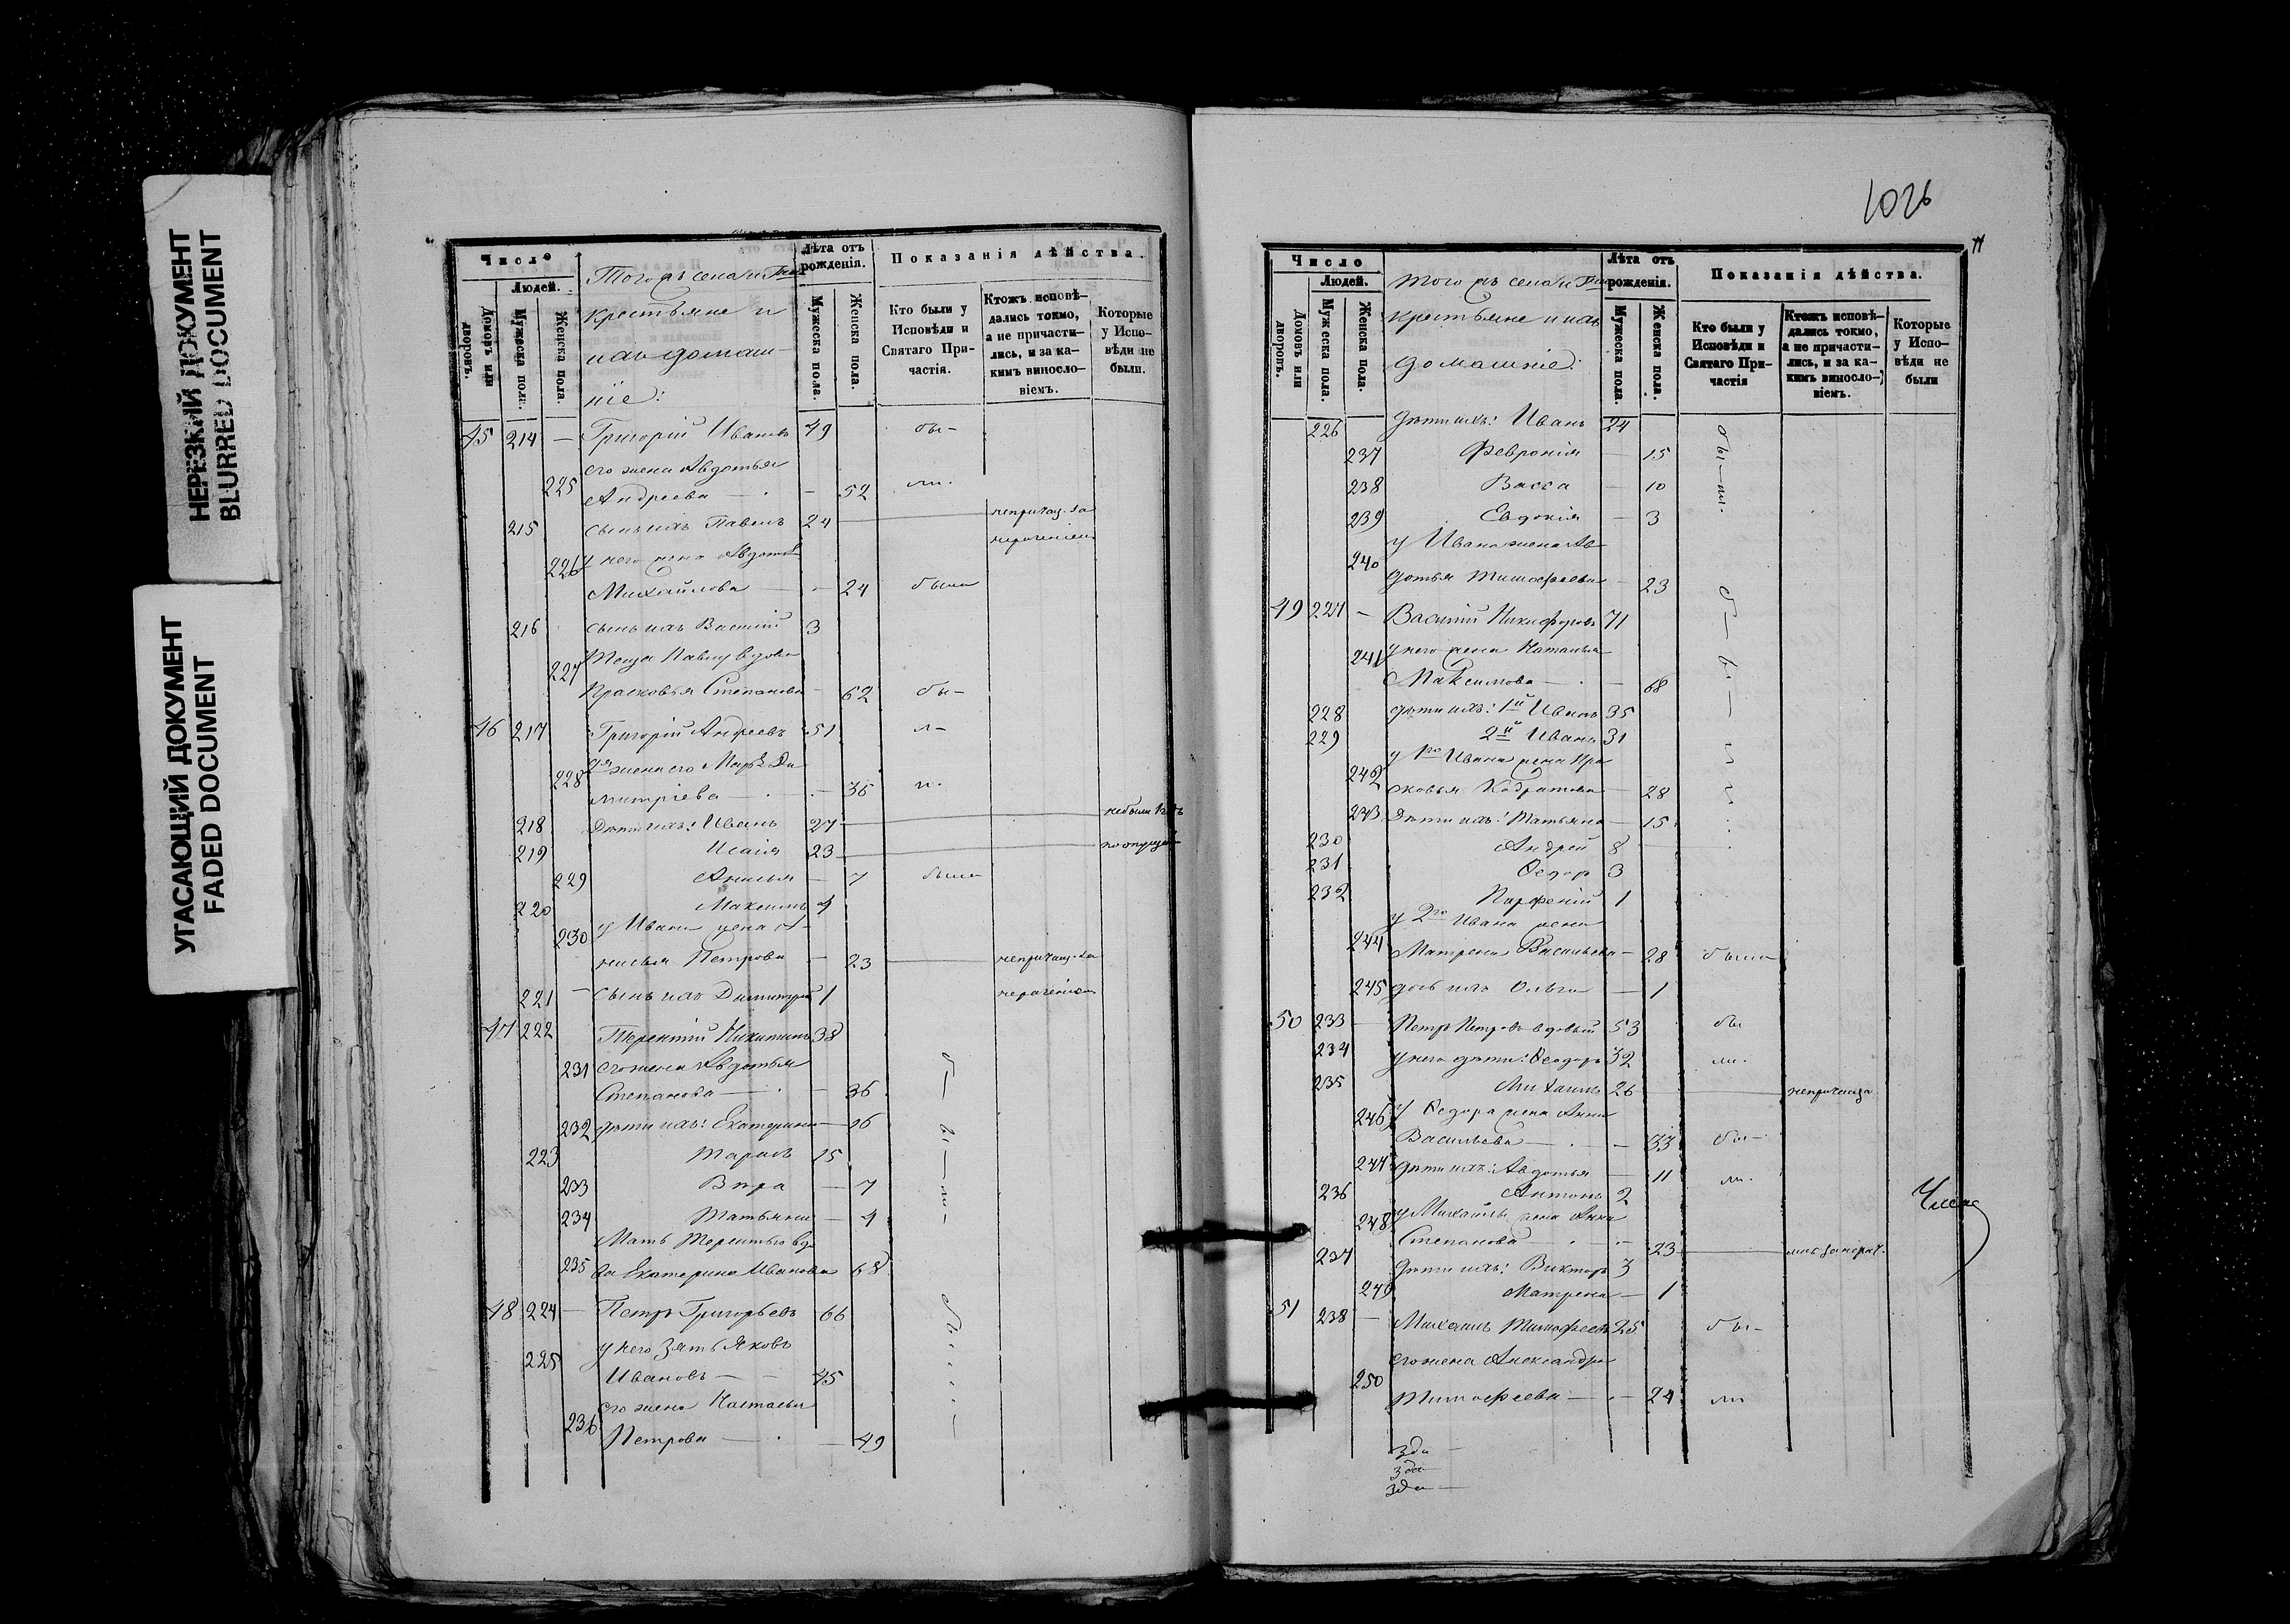 НЕРЕЗКИЙ ДОКУМЕНТ
BLURRED DOCUMENT
УГАСАЮЩИЙ ДОКУМЕНТ
FADED DOCUMENT
Число
Людей.
Домовъ или дворовъ.
Мужеска пола.
Женска пола.
Тогожъ села
крестьяне и
ихъ домаш-
ніе:
Лѣта отъ рожденія.
Мужеска пола.
Женска пола.
Показанія дѣйства.
Кто были у Исповѣди и Святаго При-частія.
Ктожъ исповѣ-дались токмо, а не причасти-лись, и за ка-кимъ винослo-віемъ.
Которые у Испо-вѣди не были.
45 214 — Григорій Ивановъ 49 бы-
его жена Авдотья
225 Андреева — 52 ли.
215 сынъ ихъ Павелъ 24 непричащ. за
нераченіем
226 у него жена Авдотья
Михайлова — 24 была
216 сынъ ихъ Василій 3
227 Теща Павлу вдова
Прасковья Степанова — 62 бы-
46 217 Григорій Андреевъ 51 л-
жена его Марѳа Ди
228 митріева — 36 и.
218 Дѣти ихъ: Иванъ 27 небыли
219 Исаія 23
229 Анисья — 7 была
220 Максимъ 4
230 у Ивана жена А-
нисья Петрова — 23 непричащ. за
221 — сынъ ихъ Димитрій 1 нераченіем
47 222 Терентій Никитинъ 38
231 его жена Авдотья
Степанова — 36
232 дѣти ихъ: Екатерина — 16
223 Тарасъ 15
233 Вѣра — 7
234 Татьяна — 4
Мать Терентью вдо
235 ва Екатерина Иванова 68
48 224 — Петръ Григорьевъ 66
у него зять Яковъ
225 Ивановъ — 45
его жена Настасья
236 Петрова — 49
1026
Число
Людей.
Домовъ или дворовъ.
Мужеска пола.
Женска пола.
того жъ села
крестьяне и ихъ
домашніе:
Лѣта отъ рожденія.
Мужеска пола.
Женска пола.
Показанія дѣйства.
Кто были у Исповѣди и Святаго При-частія
Ктожъ исповѣ-дались токмо, а не причасти-лись, и за ка-кимъ винослo-віемъ.
Которые у Испо-вѣди не были
226 дѣти ихъ: Иванъ 24
237 Февронія — 15
238 Васса — 10
239 Евдокія — 3
у Ивана жена Ав-
240 дотья Тимофеева — 23
49 227 — Василій Никифоровъ 71
241 у него жена Наталья
Максимова — 68
228 дѣти ихъ: 1й Иванъ 35
229 2й Иванъ 31
у 1го Ивана жена Пра
242 сковья Кодратова — 28
243 Дѣти ихъ: Татьяна — 15
230 Андрей 8
231 Ѳедоръ 3
232 Парфеній 1
у 2го Ивана жена
244 Матрена Васильева — 28 была
245 дочь ихъ Ольга — 1
50 233 — Петръ Петровъ вдовый 53 бы
234 у него дѣти: Ѳеодоръ 32 ли.
235 Михаилъ 26
246 у Ѳедора жена Анна
Васильева — 33 бы-
247 дѣти ихъ: Авдотья — 11 ли.
236 Антонъ 2
248 у Михаилы жена Анна
Степанова — 23
237 дѣти ихъ: Викторъ 3
249 Матрена — 1
51 238 — Михаилъ Тимофеевъ 25 бы-
его жена Александра
250 Тимофеева — 24 ли